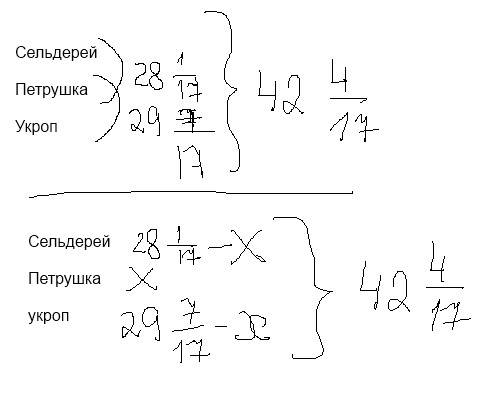 Сельдерей
28 1/17
Петрушка
42 4/17
29 7/17
Укроп
Сельдерей 28 1/17 - X
Петрушка X
42 4/17
укроп 29 7/17 - x